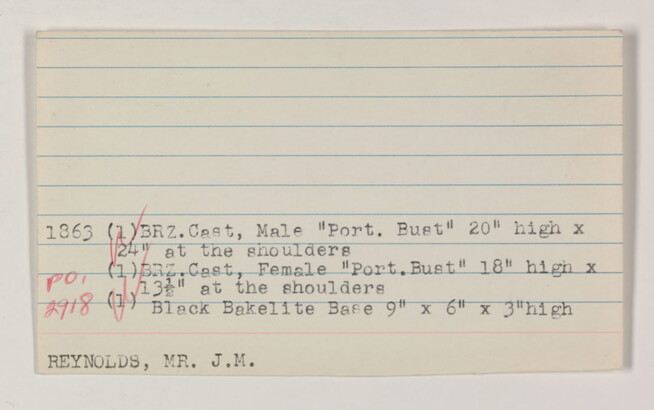 1863 (1)BRZ.Cast, Male "Port. Bust" 20" high x
24" at the shoulders
(1)BRZ.Cast, Female "Port.Bust" 18" high x
PO. 13½" at the shoulders
2918 (1) Black Bakelite Base 9" x 6" x 3"high
REYNOLDS, MR. J.M.